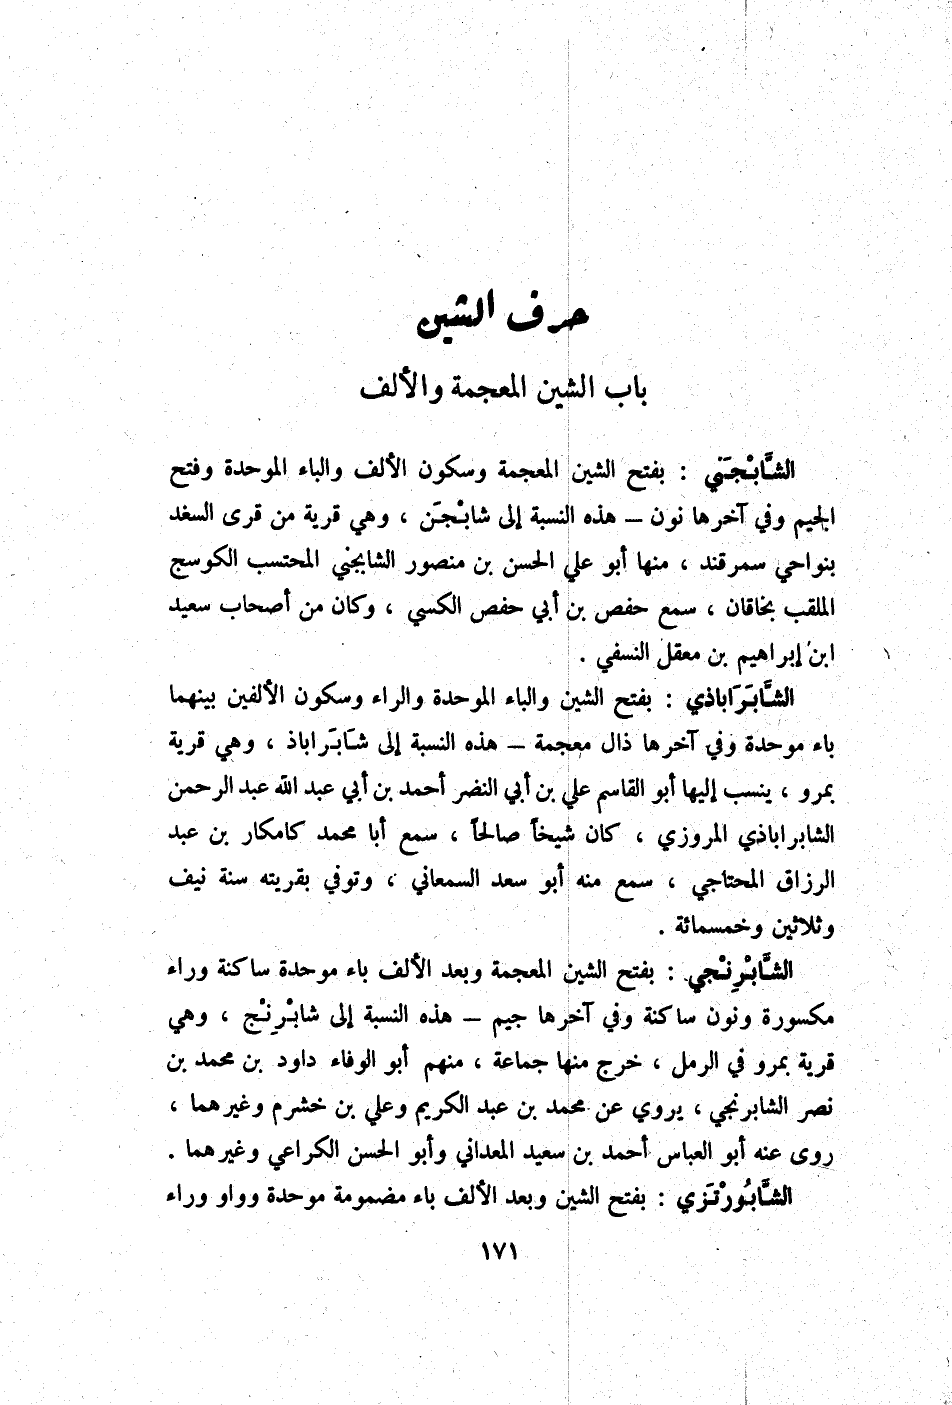 حرف الشين
باب الشين المعجمة والألف
الشَّابْجَني : بفتح الشين المعجمة وسكون الألف والباء الموحدة وفتح
الجيم وفي آخرها نون – هذه النسبة إلى شابْجَن ، وهي قرية من قرى السغد
بنواحي سمرقند ، منها أبو علي الحسن بن منصور الشابجني المحتسب الكوسج
الملقب بخاقان ، سمع حفص بن أبي حفص الكسي ، وكان من أصحاب سعيد
ابن إبراهيم بن معقل النسفي .
الشَّابَرَاباذي : بفتح الشين والباء الموحدة والراء وسكون الألفين بينهما
باء موحدة وفي آخرها ذال معجمة – هذه النسبة إلى شَابَراباذ ، وهي قرية
بمرو ، ينسب إليها أبو القاسم علي بن أبي النضر أحمد بن أبي عبد الله عبد الرحمن
الشابراباذي المروزي ، كان شيخاً صالحاً ، سمع أبا محمد كامكار بن عبد
الرزاق المحتاجي ، سمع منه أبو سعد السمعاني ، وتوفي بقريته سنة نيف
وثلاثين وخمسمائة .
الشَّابْرِنْجي : بفتح الشين المعجمة وبعد الألف باء موحدة ساكنة وراء
مكسورة ونون ساكنة وفي آخرها جيم – هذه النسبة إلى شابْرِنْج ، وهي
قرية بمرو في الرمل ، خرج منها جماعة ، منهم أبو الوفاء داود بن محمد بن
نصر الشابرنجي ، يروي عن محمد بن عبد الكريم وعلي بن خشرم وغيرهما ،
روى عنه أبو العباس أحمد بن سعيد المعداني وأبو الحسن الكراعي وغيرهما .
الشَّابُورْتَزي : بفتح الشين وبعد الألف باء مضمومة موحدة وواو وراء
١٧١